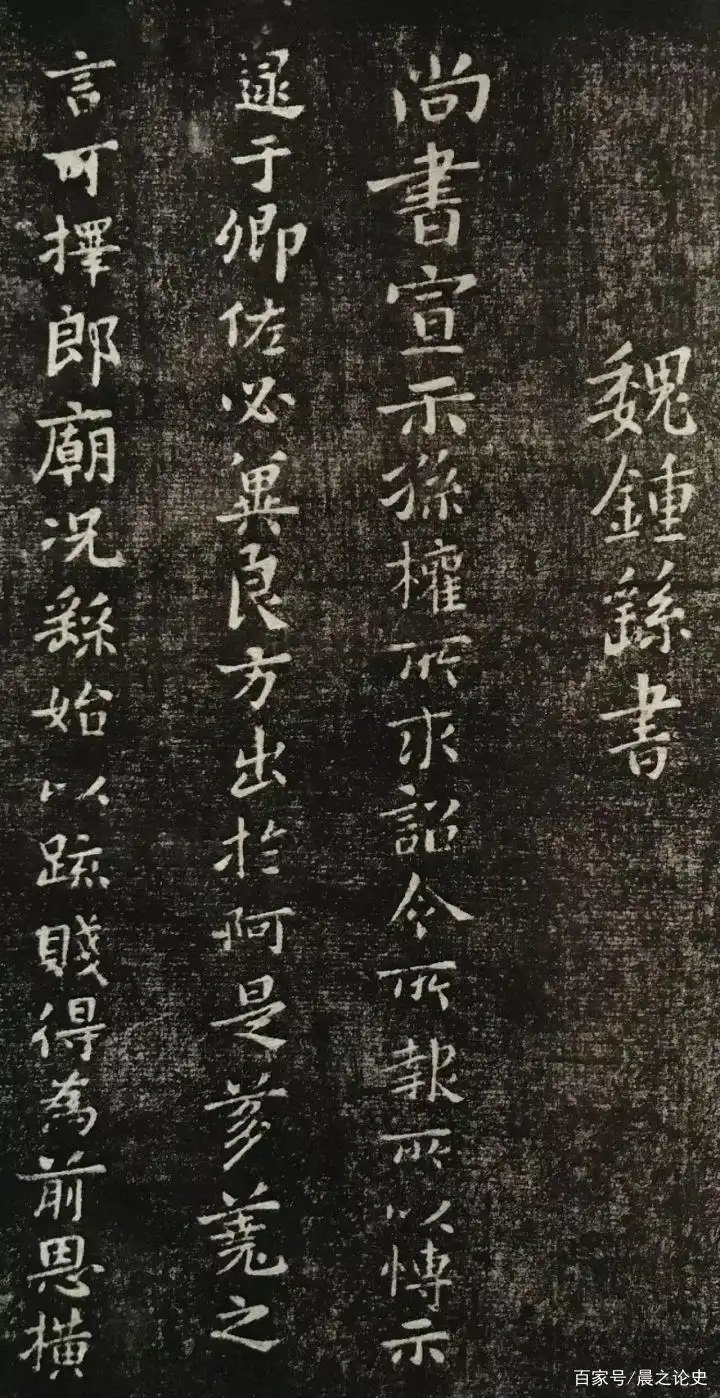 魏鍾繇書
尚書宣示孫權所求詔令所報所以博示
逮于卿佐必冀良方出於阿是芻蕘之
言可擇郎廟況繇始以疏賤得為前恩橫
百家号/晨之论史